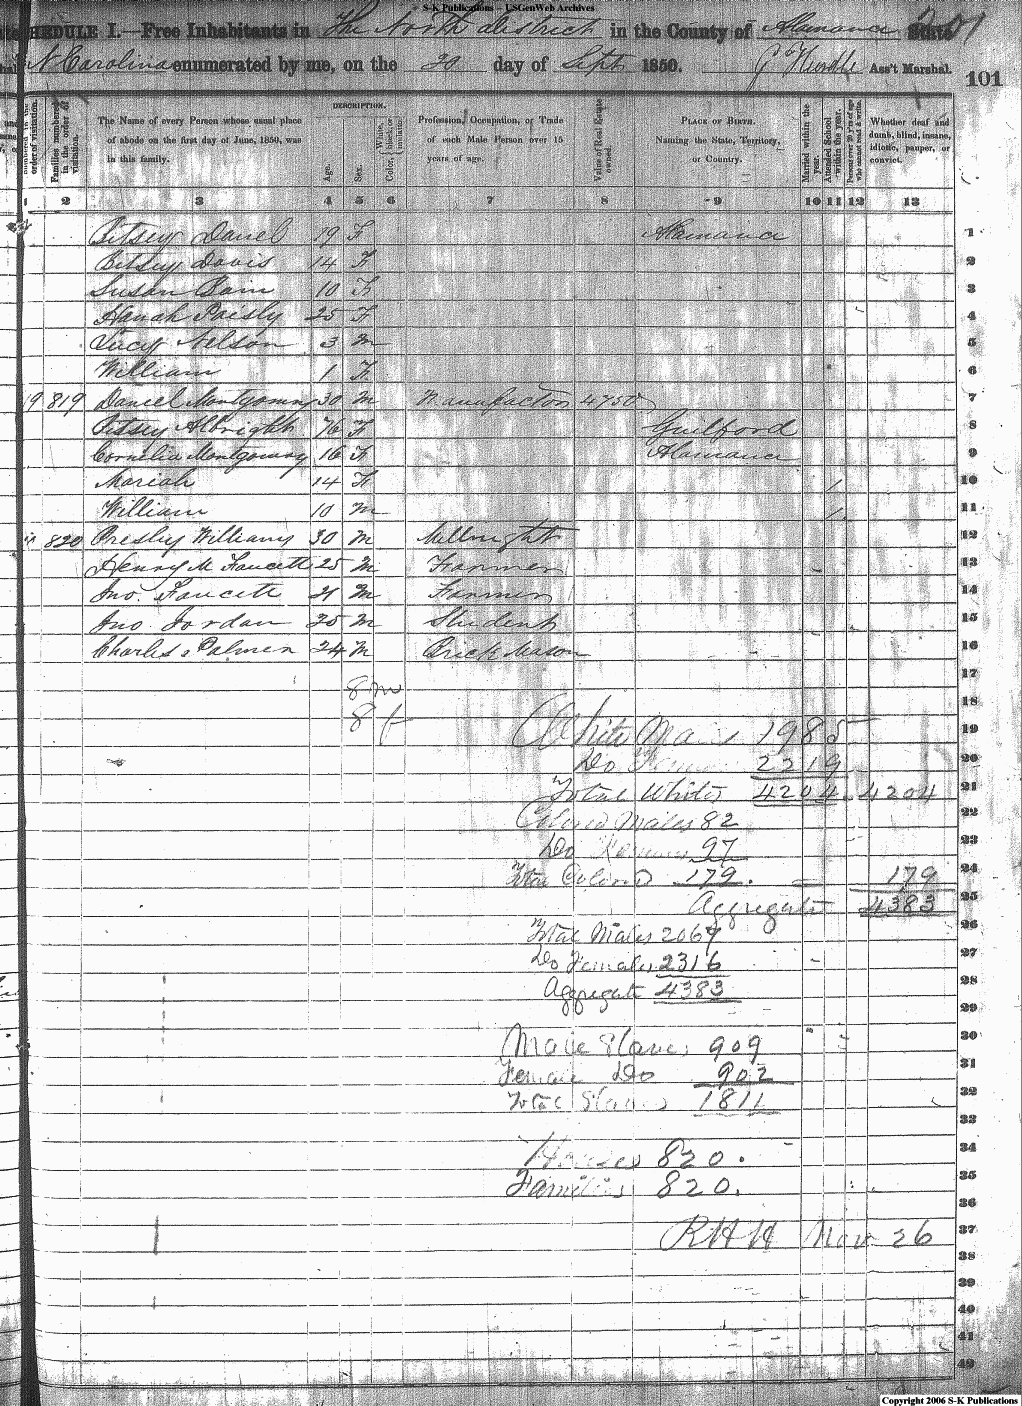 S-K Publications – USGenWeb Archives
SCHEDULE I.—Free Inhabitants in The North district in the County of Alamance State 201
N Carolina enumerated by me, on the 20 day of Sept 1850. Ass't Marshal. 101
Families numbered in the order of visitation.
The Name of every Person whose usual place of abode on the first day of June, 1850, was in this family.
DESCRIPTION.
Age.
Sex.
Color, White, black or mulatto.
Profession, Occupation, or Trade of each Male Person over 15 years of age.
Value of Real Estate owned.
PLACE OF BIRTH. Naming the State, Territory, or Country.
Married within the year.
Attended School within the year.
Persons over 20 y'rs of age who cannot read & write.
Whether deaf and dumb, blind, insane, idiotic, pauper, or convict.
1 2 3 4 5 6 7 8 9 10 11 12 13
Betsey Daniel 19 F Alamance 1
Betsey Davis 14 F 2
Susan Bain 10 F 3
Hanah Paisly 25 F 4
Lucy Nelson 3 m 5
William 1 F 6
19 819 Daniel Montgomry 30 M Manufactor 4750 7
Betsey Albright 76 F Guilford 8
Cornelia Montgomry 16 F Alamance 9
Mariah 14 F 1 10
William 10 m 1 11
820 Presley Williams 30 M Millwright 12
Henry M Faucett 25 M Farmer 13
Jno. Faucett 21 M Farmer 14
Jno. Jordan 25 M Student 15
Charles Palmer 24 M Brick Mason 16
17
8 m 18
8 f White Males 1985 19
Do Females 2219 20
Total Whites 4204 4204 21
Colored Males 82 22
Do Females 97 23
Total Colored 179. 179 24
Aggregate 4383 25
Total Males 2067 26
Do Females 2316 27
Aggregate 4383 28
29
Male Slaves 909 30
Female Do 902 31
Total Slaves 1811 32
33
Houses 820. 34
Families 820. 35
36
RHH Nov 26 37
38
39
40
41
42
Copyright 2006 S-K Publications